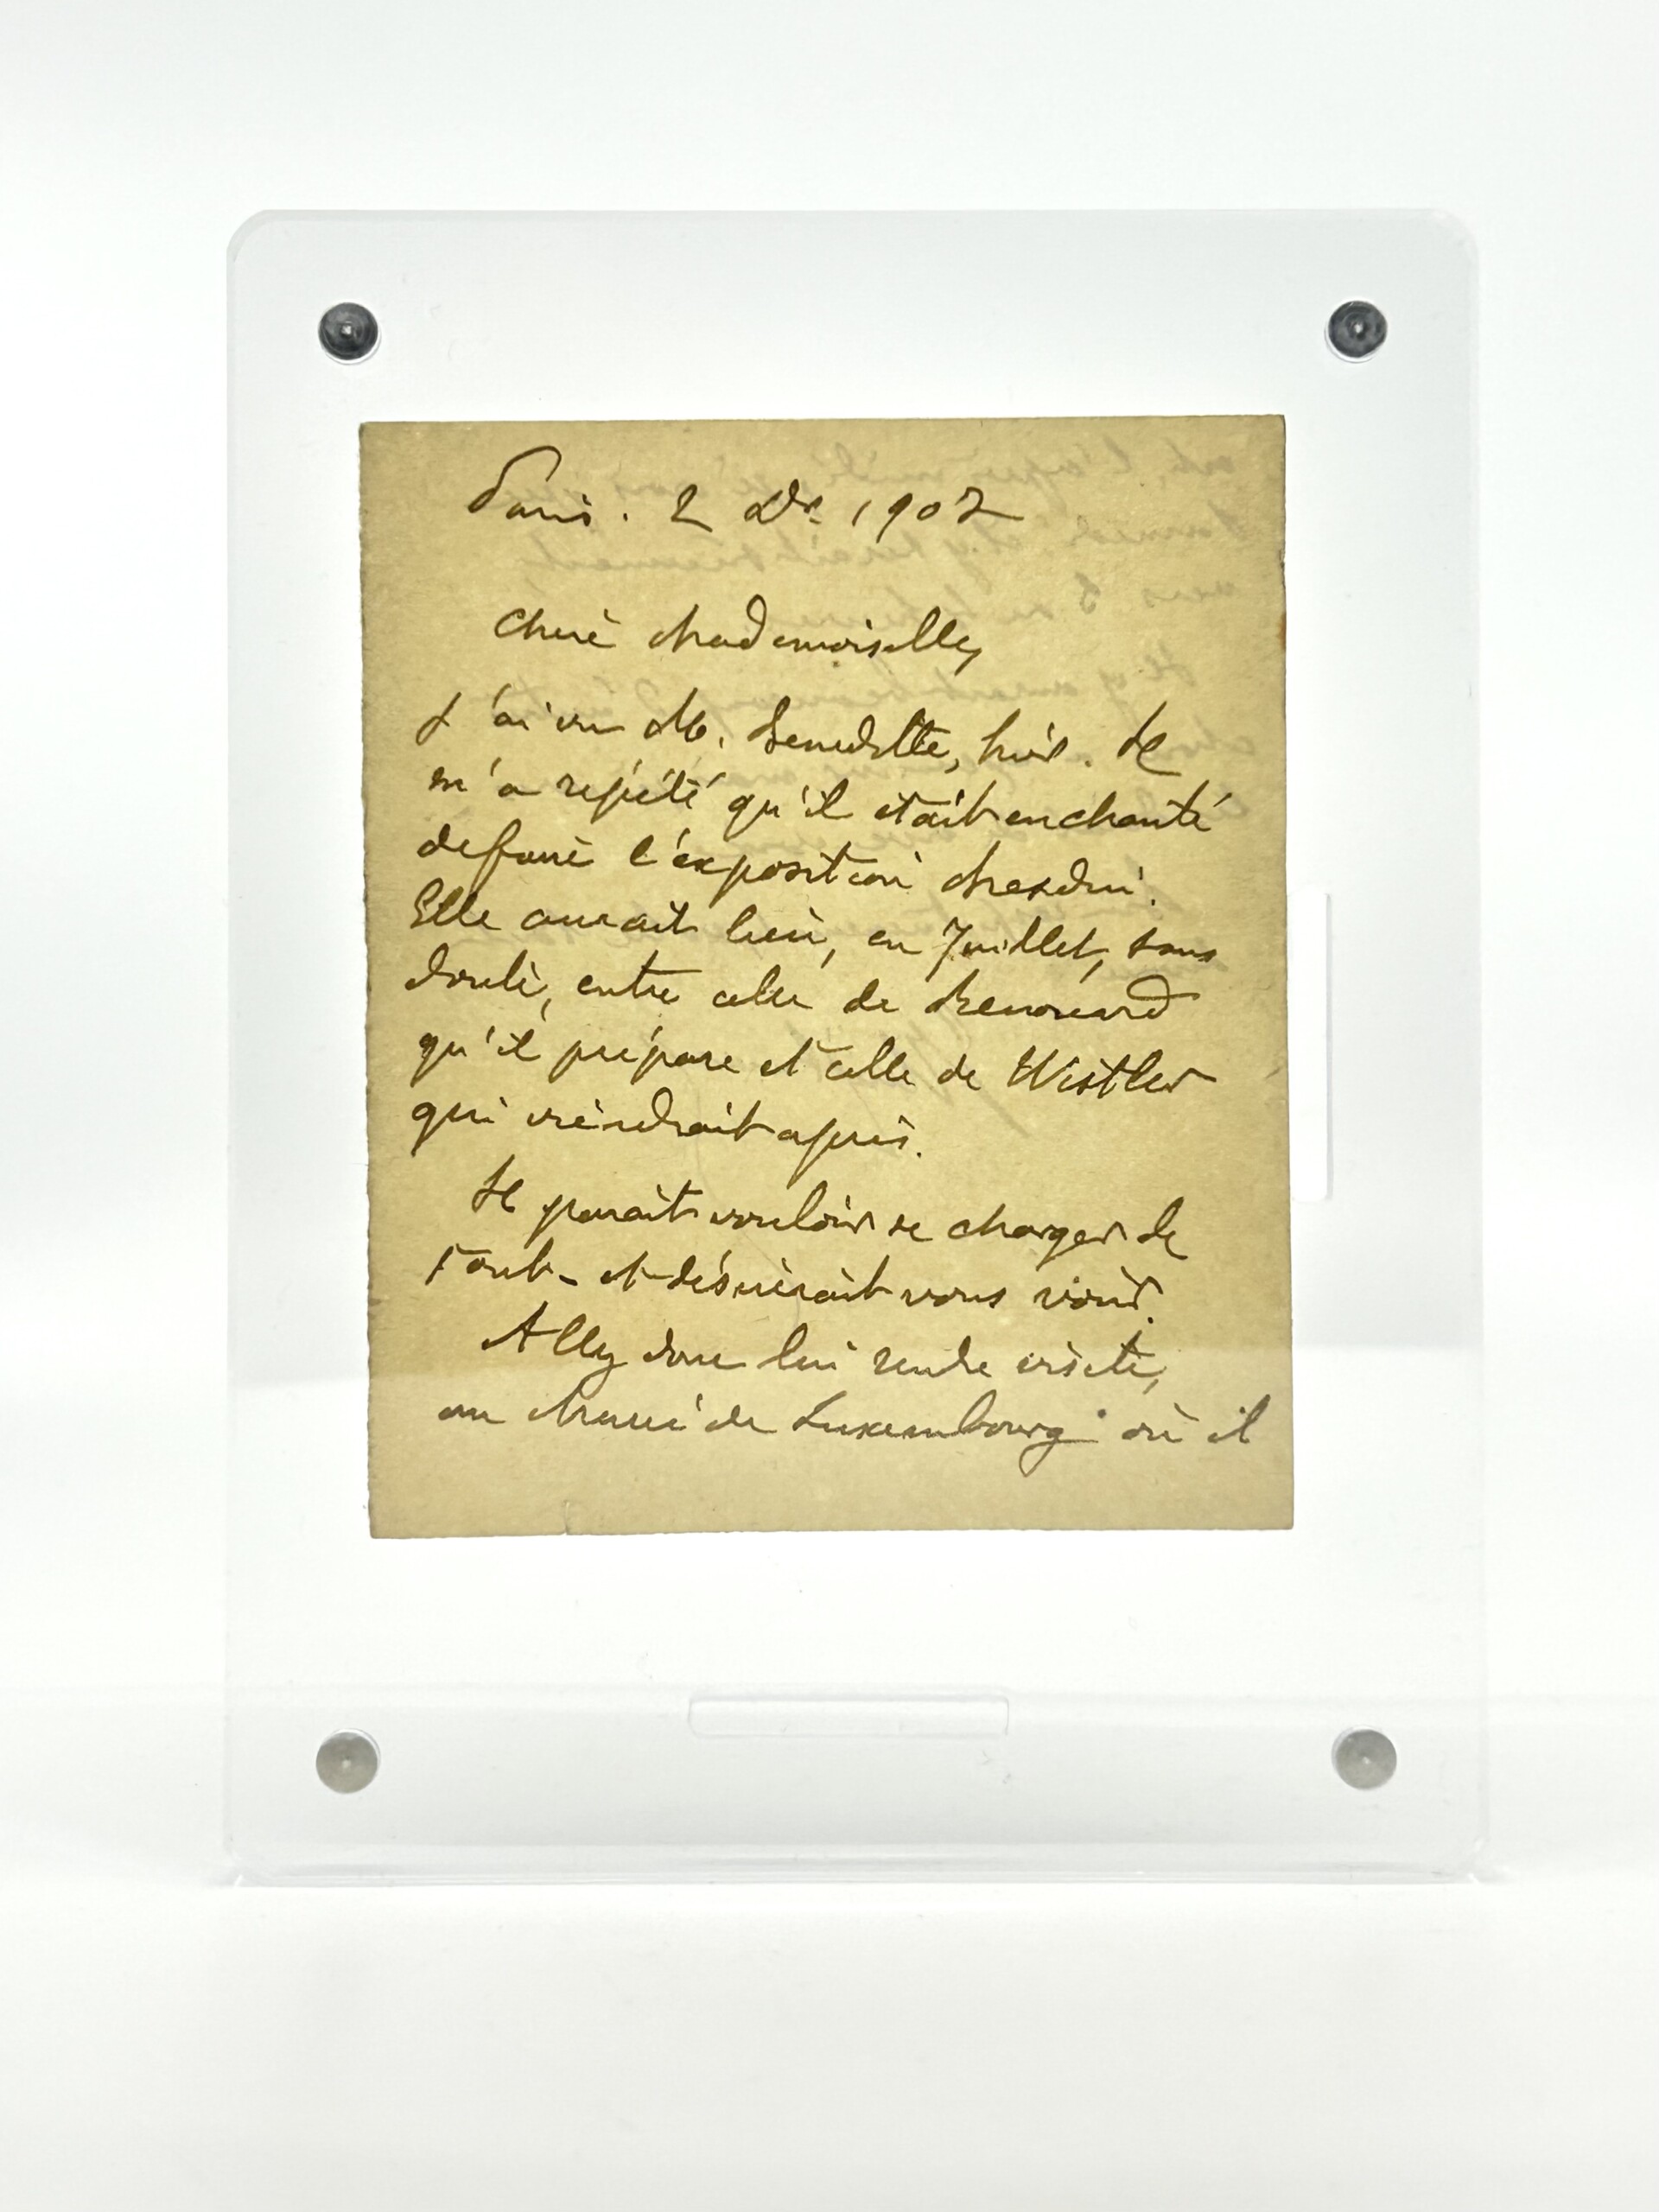 Paris. 2 Dre 1907
Chère Mademoiselle,
J'ai vu M. Beneditte, hier. Il
m'a répété qu'il était enchanté
de faire l'exposition
Elle aurait lieu, en Juillet, sans
doute, entre celle de Renouard
qu'il prépare et celle de Wistler
qui viendrait après.
Il parait vouloir se charger de
tout - et désirerait vous voir.
Allez donc lui rendre visite,
au Musée du Luxembourg où il